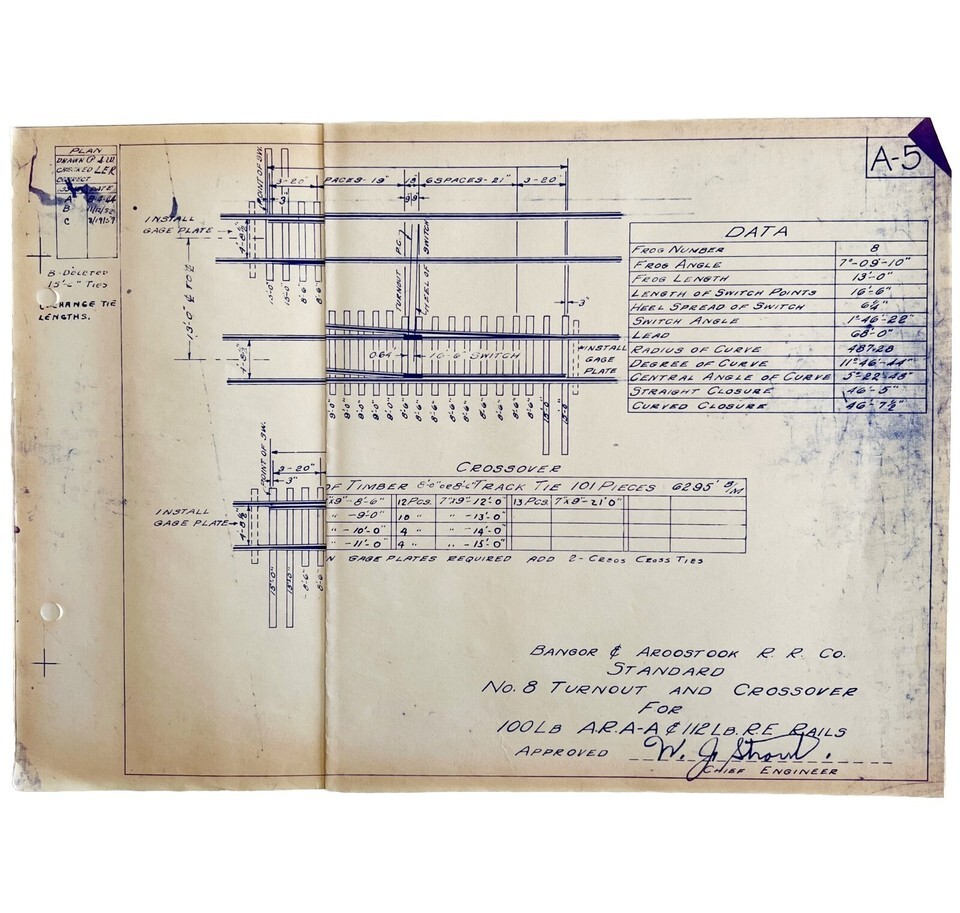 PLAN
DRAWN
CHECKED L.E.R.
CORRECT
DATE
A
B
C
B-DELETED
15'-6" TIES
C-CHANGE TIE
LENGTHS.
A-5
POINT OF SW.
3'-20"
PACES-19"
6 SPACES-21"
3-20"
3"
INSTALL
GAGE PLATE
4'-8½"
13'-0" ¢ TO ¢
15'-0"
15'-0"
8'-6"
8'-6"
TURNOUT P.C.
HEEL OF SWITCH
3"
0.64'
16'-6" SWITCH
INSTALL
GAGE
PLATE
9'-0" 9'-0" 9'-0" 9'-0" 9'-0" 8'-6" 8'-6" 8'-6" 8'-6" 8'-6" 8'-6" 8'-6" 8'-6" 8'-6" 15'-0" 15'-0"
DATA
FROG NUMBER 8
FROG ANGLE 7°-09'-10"
FROG LENGTH 13'-0"
LENGTH OF SWITCH POINTS 16'-6"
HEEL SPREAD OF SWITCH 6¼"
SWITCH ANGLE 1°-46'-22"
LEAD 68'-0"
RADIUS OF CURVE 487.28
DEGREE OF CURVE 11°-46'-44"
CENTRAL ANGLE OF CURVE 5°-22'-48"
STRAIGHT CLOSURE 46'-5"
CURVED CLOSURE 46'-7½"
POINT OF SW.
3-20"
3"
INSTALL
GAGE PLATE
4'-8½"
15'-0"
15'-0"
8'-6"
8'-6"
CROSSOVER
OF TIMBER 8'-0" OR 8'-6" TRACK TIE 101 PIECES 6295' B/M
"x9"-8'-6" 12 PCS. 7"x9"-12'-0" 13 PCS. 7"x9"-21'0"
" -9'-0" 10 " " -13'-0"
" -10'-0" 4 " " -14'-0"
" -11'-0" 4 " " -15'-0"
N GAGE PLATES REQUIRED ADD 2-CREOS CROSS TIES
BANGOR & AROOSTOOK R. R. CO.
STANDARD
NO. 8 TURNOUT AND CROSSOVER
FOR
100 LB A.R.A-A & 112 LB. R.E. RAILS
APPROVED W. J. Strout.
CHIEF ENGINEER